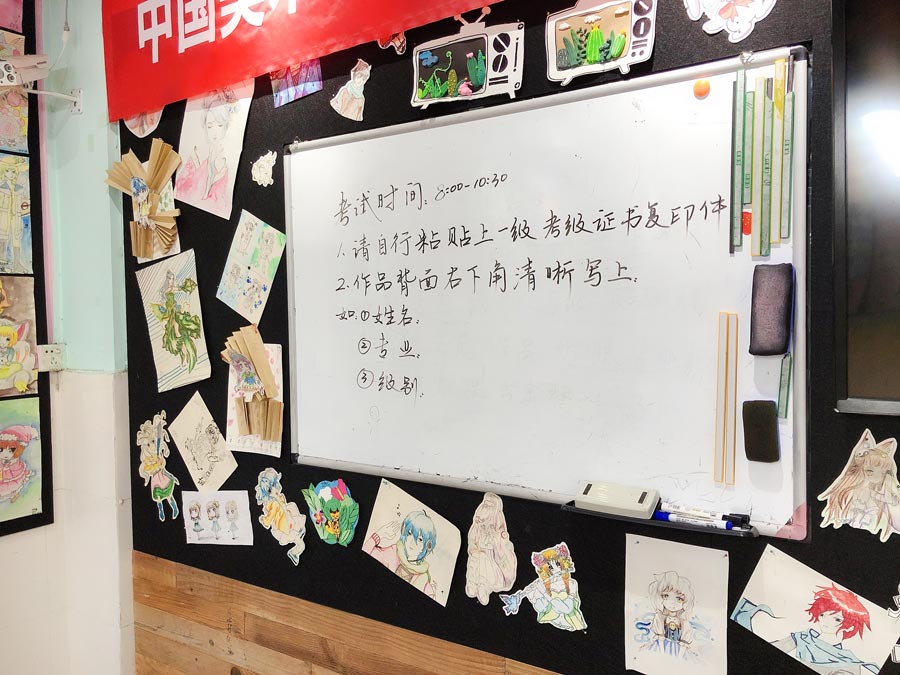 中国美术
考试时间:8:00-10:30
1.请自行粘贴上一级考级证书复印体
2.作品背面右下角清晰写上.
如:①姓名:
②专业:
③级别.